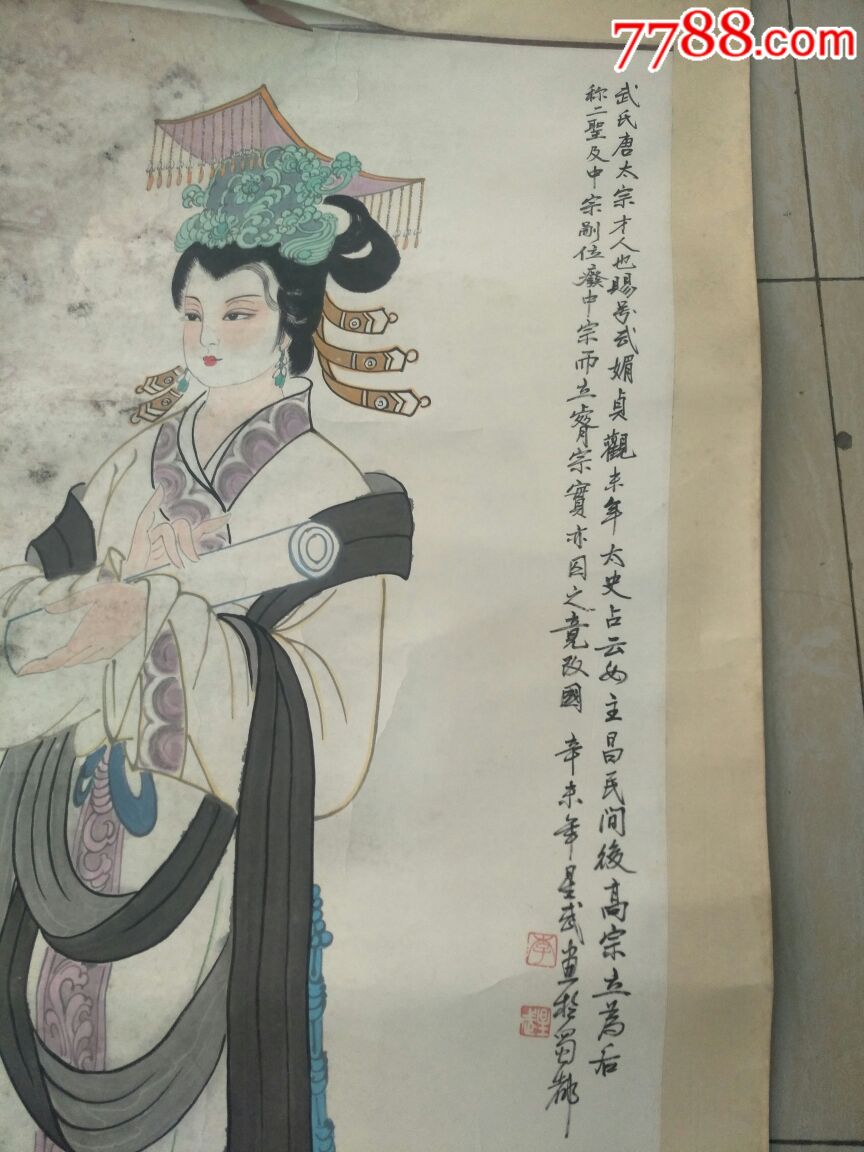 7788.com
武氏唐太宗才人也賜号武媚貞觀末年太史占云女主昌民间後髙宗立為后
称二聖及中宗嗣位廢中宗而立睿宗實亦囚之竟改國
辛未年星武畫於蜀都
李
星武